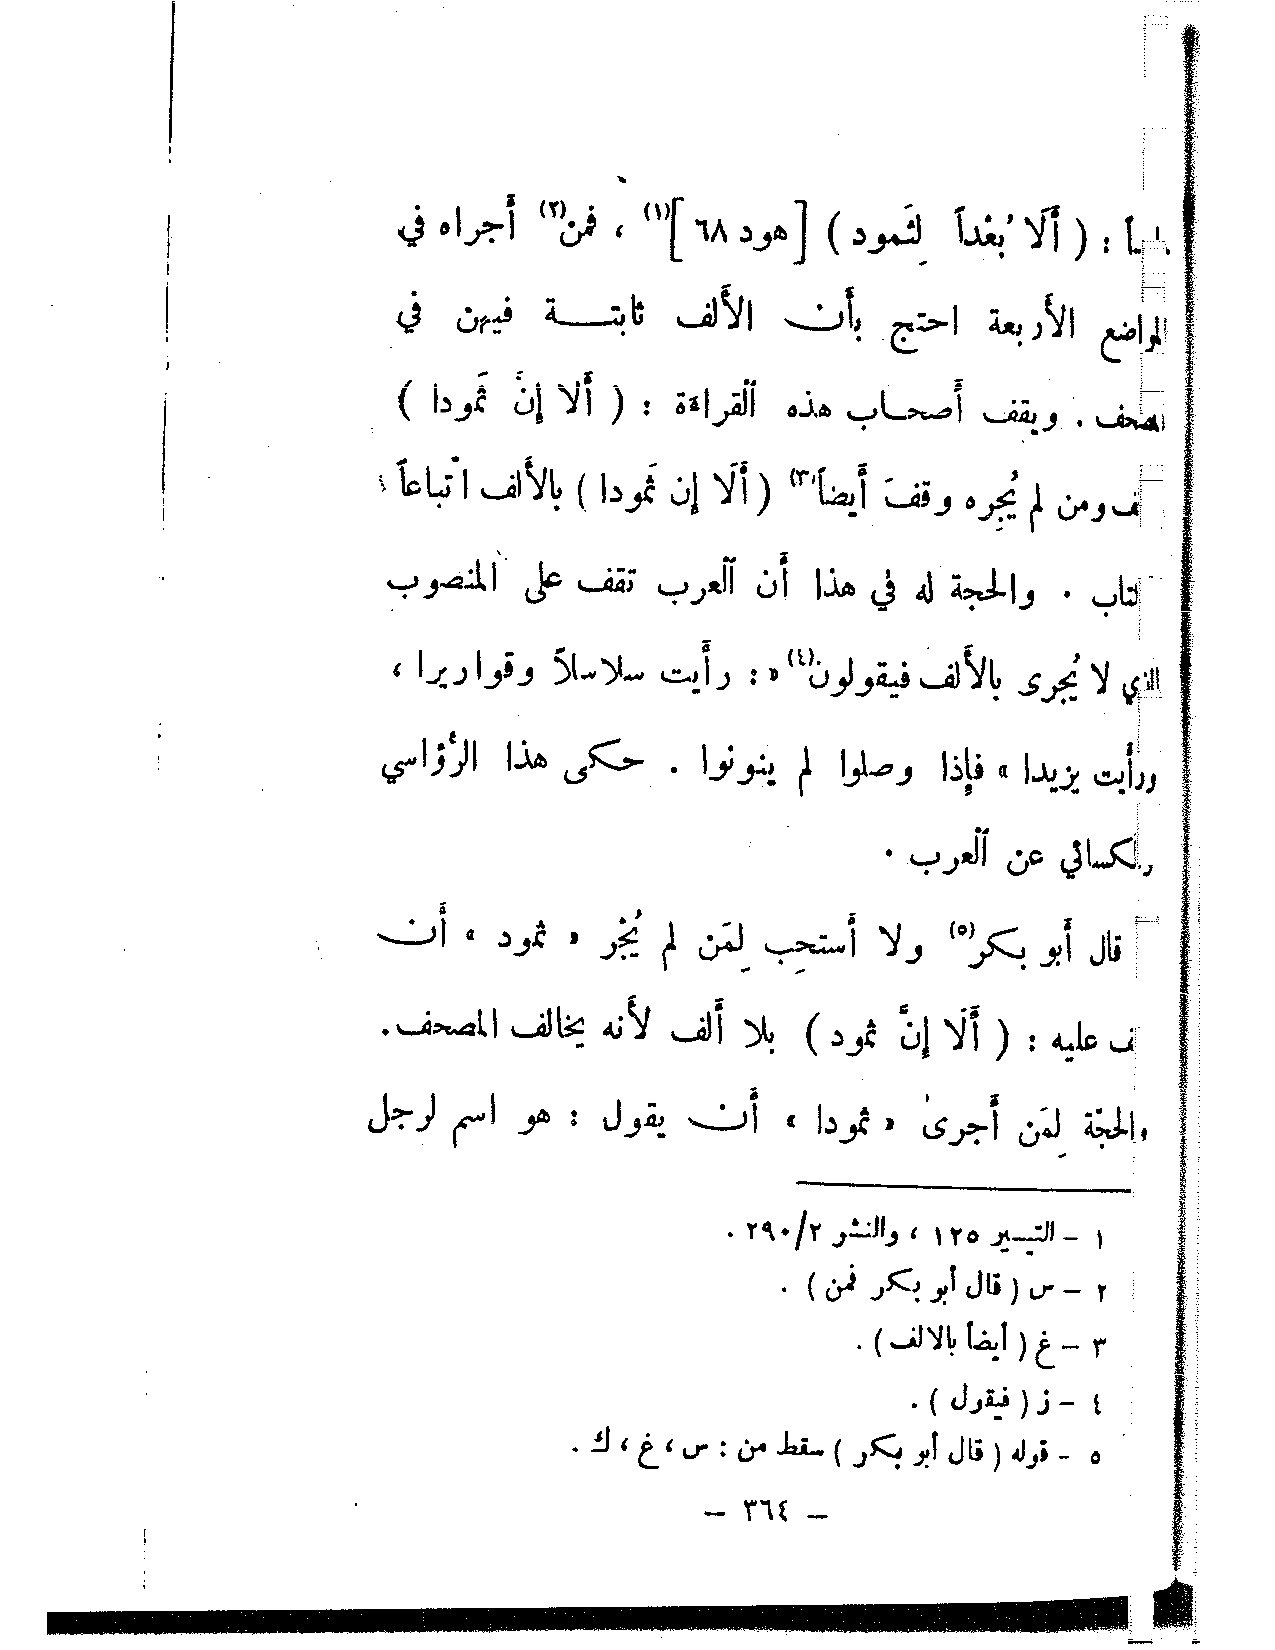 : ( أَلَا بُعْداً لِثَمود ) [هود ٦٨](١) ، فمن(٢) أجراه في
المواضع الأربعة احتج بأن الألف ثابتة فيهن في
المصحف . ويقف أصحاب هذه القراءة : ( ألا إنَّ ثَمودا )
ومن لم يُجِره وقفَ أيضاً(٣) ( أَلَا إن ثَمودا ) بالألف اتباعاً
والحجة له في هذا أن العرب تقف على المنصوب
الذي لا يُجرى بالألف فيقولون(٤) « : رأيت سلاسلاً وقواريرا ،
ورأيت يزيدا » فإذا وصلوا لم ينونوا . حكى هذا الرُّؤاسي
والكسائي عن العرب .
قال أبو بكر(٥) ولا أستحِب لِمَن لم يُجْرِ « ثمود » أن
عليه : ( أَلَا إنَّ ثمود ) بلا ألف لأنه يخالف المصحف .
والحجّة لِمَن أَجرى « ثمودا » أن يقول : هو اسم لرجل
١ – التيسير ١٢٥ ، والنشر ٢/٢٩٠ .
٢ – س ( قال أبو بكر فمن ) .
٣ – غ ( أيضاً بالالف ) .
٤ – ز ( فيقول ) .
٥ – قوله ( قال أبو بكر ) سقط من : س ، غ ، ك .
– ٣٦٤ –